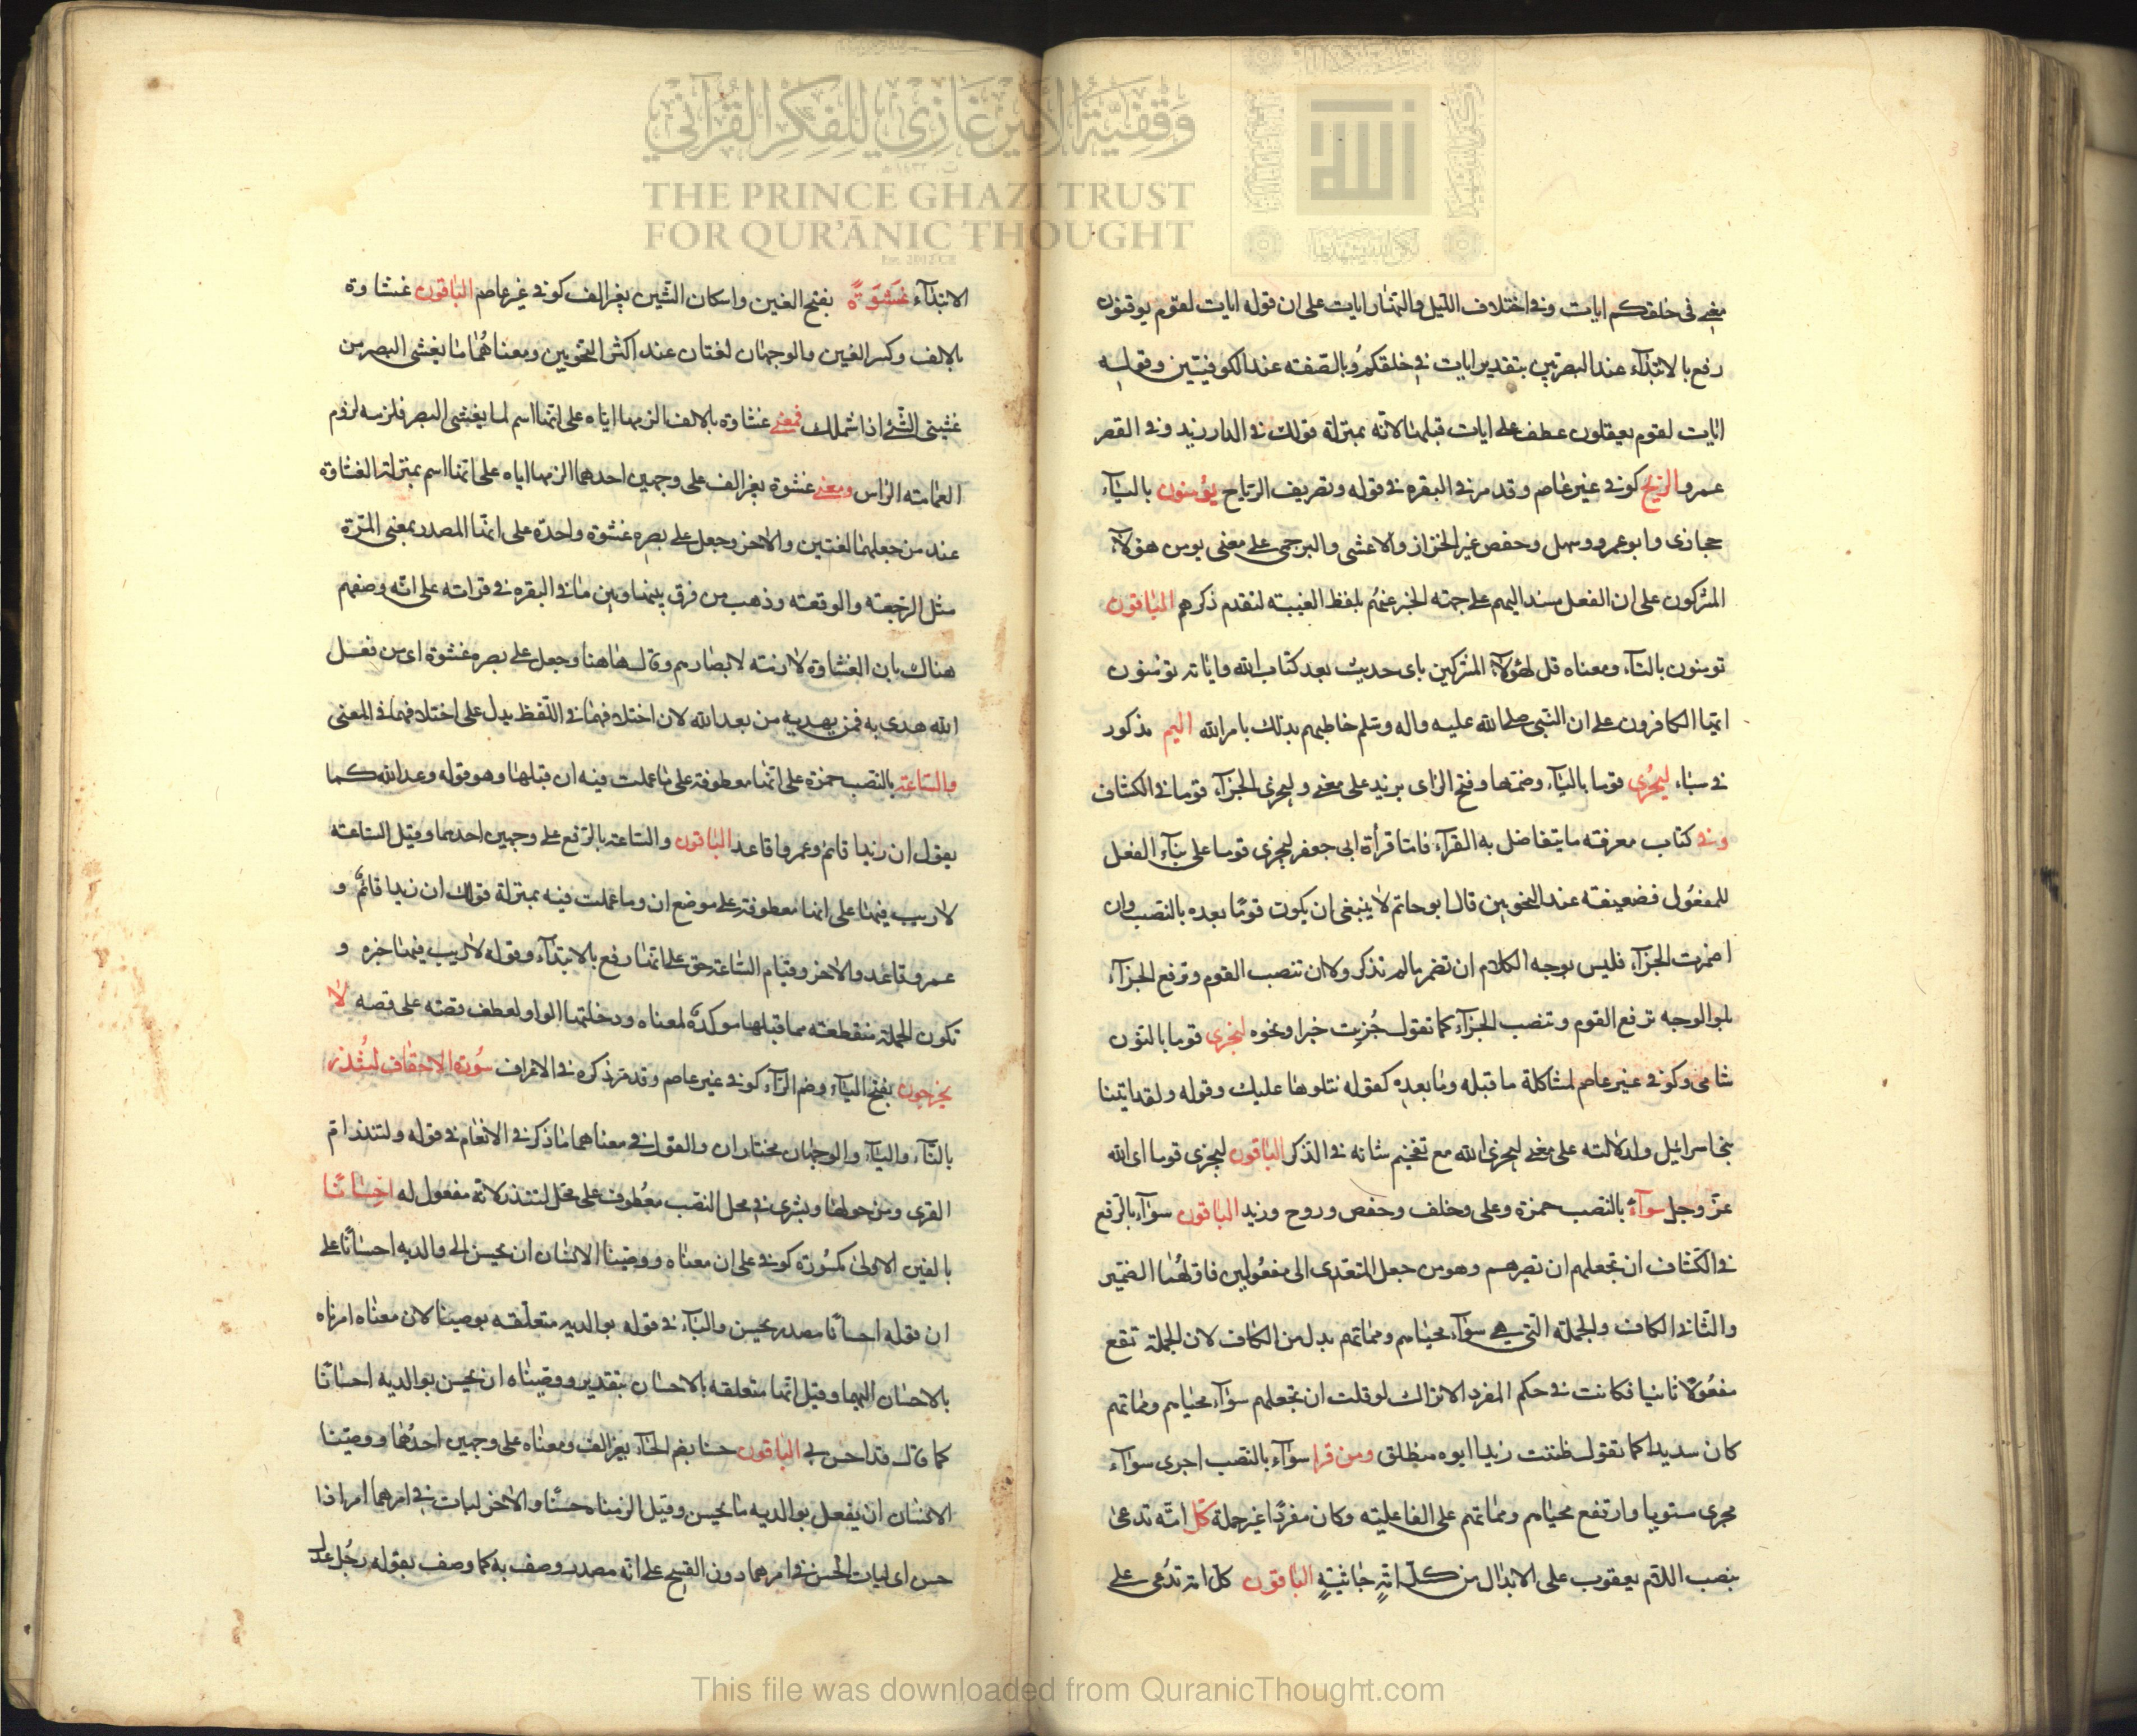 وَقْفِيَّةُ الأَمِيرِ غَازِي لِلْفِكْرِ الْقُرْآنِي
THE PRINCE GHAZI TRUST
FOR QUR'ĀNIC THOUGHT
Est. 2012 CE
الله
معنى في خلقكم ايات وفي اختلاف الليل والنهار ايات على ان قوله ايات لقوم يوقنون
رفع بالابتدآء عند البصريين بتقدير ايات في خلقكم وبالصفته عند الكوفيتين وقوله
ايات لقوم يعقلون عطف على ايات قبلها لانه بمنزلة قولك في الدار زيد وفي القصر
عمرو الريح كوفي غير عاصم وقد مر في البقره في قوله وتصريف الرياح يؤمنون باليآء
حجازى وابو عمرو وسهل وحفص غير الخزاز والاعشى والبرجمى على معنى يومن هؤلآء
المشركون على ان الفعل مسند اليهم على جهته الخبر عنهم بلفظ الغيبته لتقدم ذكرهم الباقون
تومنون بالتآء ومعناه قل لهؤلآء المشركين باى حديث بعد كتاب الله واياته تؤمنون
ايها الكافرون على ان النبي صلى الله عليه واله وسلم خاطبهم بذلك بامر الله اليم مذكور
في سباء ليجزى قوما باليآء وضمها وفتح الزاى يزيد على معنى وليجزى الجزآء قوما في الكشاف
وفي كتاب معرفته ما يتفاضل به القرآء فاما قرأة ابى جعفر ليجزى قوما على بنآء الفعل
للمفعول فضعيفته عند النحويين قال ابو حاتم لا ينبغى ان يكون قومًا بعده بالنصب وان
اضمرت الجزآء فليس بوجه الكلام ان تضمر ما لم تذكر ولا ان تنصب القوم وترفع الجزآء
بل الوجه ترفع القوم وتنصب الجزآء كما تقول جُزيت خيرا ونحوه لنجزى قوما بالنون
شامى وكوفي غير عاصم لمشاكلة ما قبله وما بعده كقوله نتلوها عليك وقوله ولقد اتينا
بنى اسرائيل ولدلالته على معنى ليجزى الله مع تفخيم شانه في الذكر الباقون ليجزى قوما اى الله
عزّ وجل سوآءً بالنصب حمزة وعلى وخلف وحفص وروح وزيد الباقون سوآء بالرفع
في الكشاف ان نجعلهم ان نصيرهم وهو من جعل المتعدى الى مفعولين فاولهما الضمير
والثانى الكاف والجملة التى هي سوآء محياهم ومماتهم بدل من الكاف لان الجملة تقع
مفعولًا ثانيا فكانت في حكم المفرد الا تراك لو قلت ان نجعلهم سوآء محياهم ومماتهم
كان سديدا كما تقول ظننت زيدا ابوه منطلق ومن قرا سوآء بالنصب اجرى سوآء
مجرى مستويا وارتفع محياهم ومماتهم على الفاعليته وكان مفردًا غير جملة كل امة تدعى
بنصب اللام يعقوب على الابدال من كل امةٍ جاثيةٍ الباقون كل امة تدُعى على
الابتدآء غَشْوَةً بفتح الغين واسكان الشين بغير الف كوفي غير عاصم الباقون غشاوة
بالالف وكسر الغين والوجهان لغتان عند اكثر النحويين ومعناهُما ما يغشى البصر من
غشينى الشئ اذا شملك فمعنى غشاوة بالالف الزمها اياه على انها اسم لما يغشى البصر فلزمه لزوم
العمامته الراس ومعنى غشوة بغير الف على وجهين احدهما الزمها اياه على انها اسم بمنزلة الغشاوة
عند من جعلهما لغتين والاخر وجعل على بصره غشوة واحدة على انها المصدر بمعنى المرّة
مثل الرجعته والوقعته وذهب من فرق بينها وبين ما في البقره في قراته على انه وصفهم
هناك بان الغشاوة لازمته لابصارهم وقال هاهنا وجعل على بصره غشوة اى من فعل
الله هدى به فمن يهديه من بعد الله لان اختلافهما في اللفظ يدل على اختلافهما في المعنى
والساعة بالنصب حمزة على انها معطوفة على ما عملت فيه ان قبلها وهو قوله وعد الله كما
يقول ان زيدا قائم وعمروا قاعد الباقون والساعة بالرفع على وجهين احدهما وقيل الساعته
لا ريب فيها على انها معطوفة على موضع ان وما عملت فيه بمنزلة قولك ان زيدا قائمٌ و
عمرو قاعد والاخر وقيام الساعة حق على انها رفع بالابتدآء وقوله لا ريب فيها خبره و
تكون الجملة منقطعته مما قبلها موكدةً لمعناه ودخلتها الواو لعطف قصته على قصه لا
يخرجون بفتح اليآء وضم الرآء كوفي غير عاصم وقد مر ذكره في الاعراف سُورة الاحقاف لتُنذر
بالتآء واليآء والوجهان مختاران والقول في معناهما ما ذكر في الانعام في قوله ولتنذر ام
القرى ومن حولها وبشرى في محل النصب معطوف على محل لتنذر لانه مفعول له احسانًا
بالفين الاولى مكسُورة كوفي على ان معناه ووصينا الانسان ان يحسن الى والديه احسانًا على
ان قوله احسانًا مصدر يحسن والبآء في قوله بوالديه متعلقه بوصينا لان معناه امرناه
بالاحسان اليهما وقيل انها متعلقه بالاحسان بتقدير ووصيناه ان يحسن بوالديه احسانًا
كما قال قد احسن بي الباقون حسنا بضم الحآء بغير الف ومعناه على وجهين احدُهما ووصينا
الانسان ان يفعل بوالديه ما يحسن وقيل الزمناه حسنًا والاخر ليات في امرهما امرا ذا
حسن اى ليات الحسن في امرهما دون القبيح على انه مصدر وصف به كما وصف بقوله رجُل عدل
This file was downloaded from QuranicThought.com